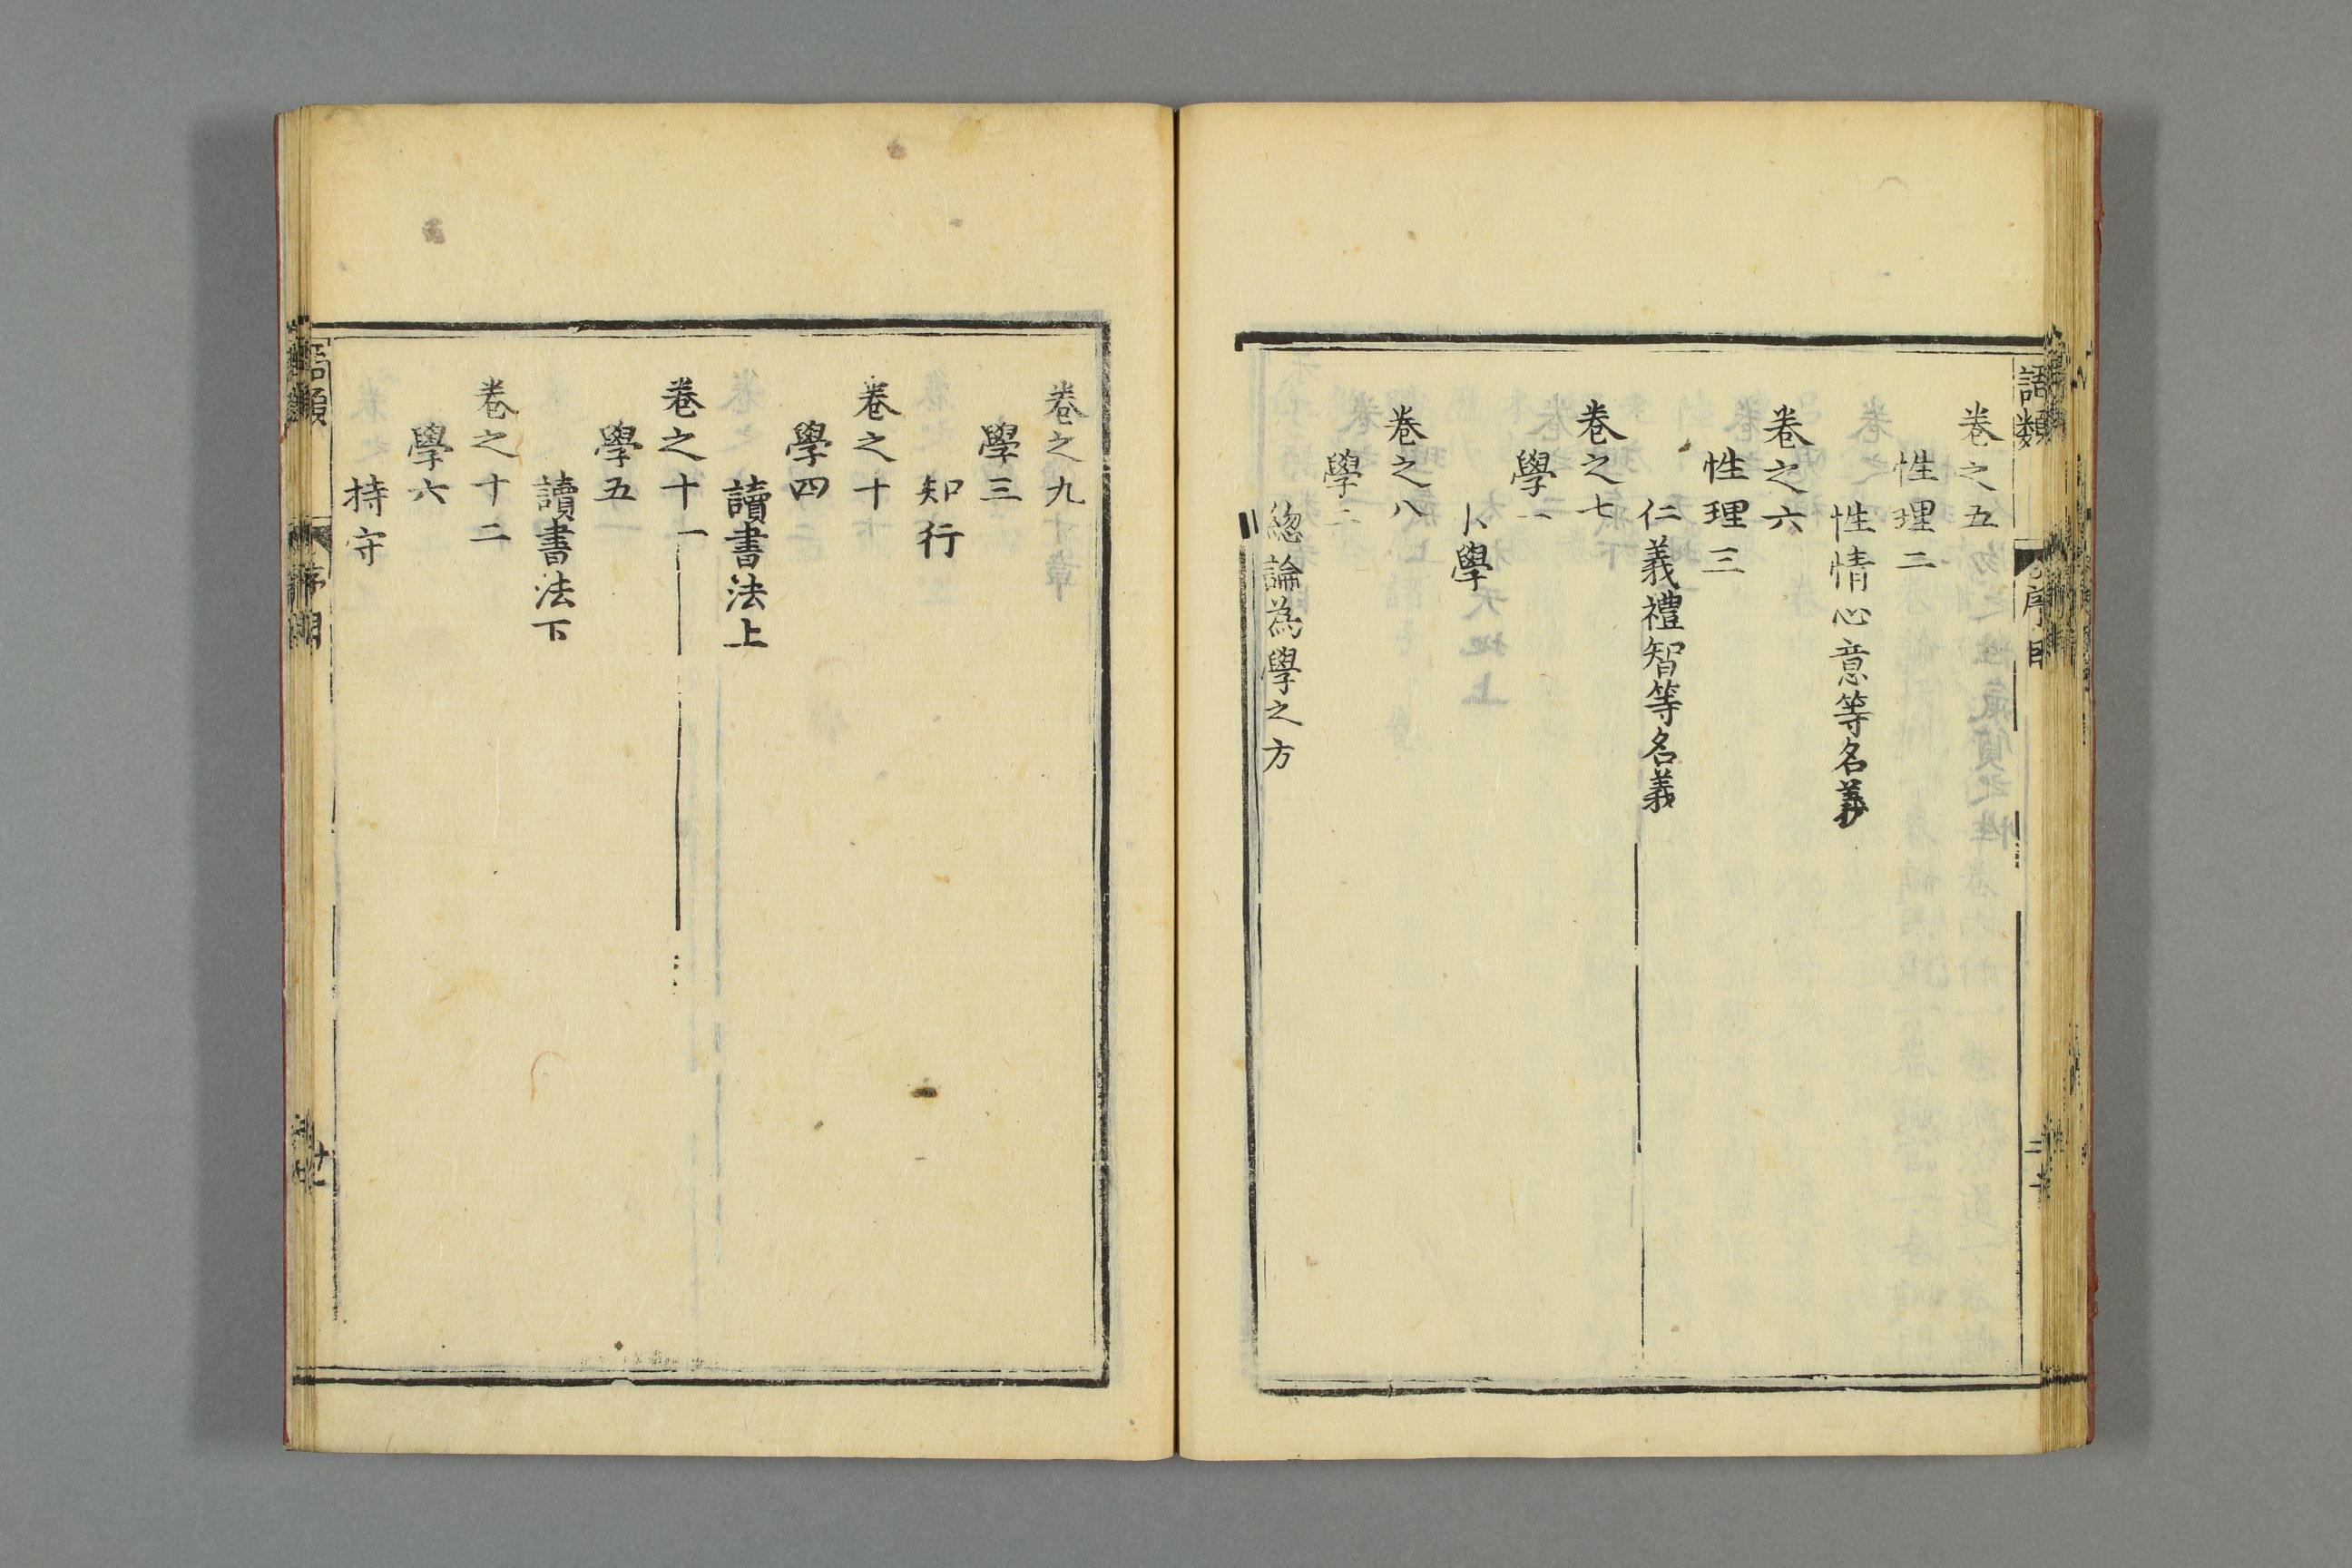 語類 序目
卷之五
性理二
性情心意等名義
卷之六
性理三
仁義禮智等名義
卷之七
學一
小學
卷之八
學二
總論為學之方
卷之九
學三
知行
卷之十
學四
讀書法上
卷之十一
學五
讀書法下
卷之十二
學六
持守
語類 序目